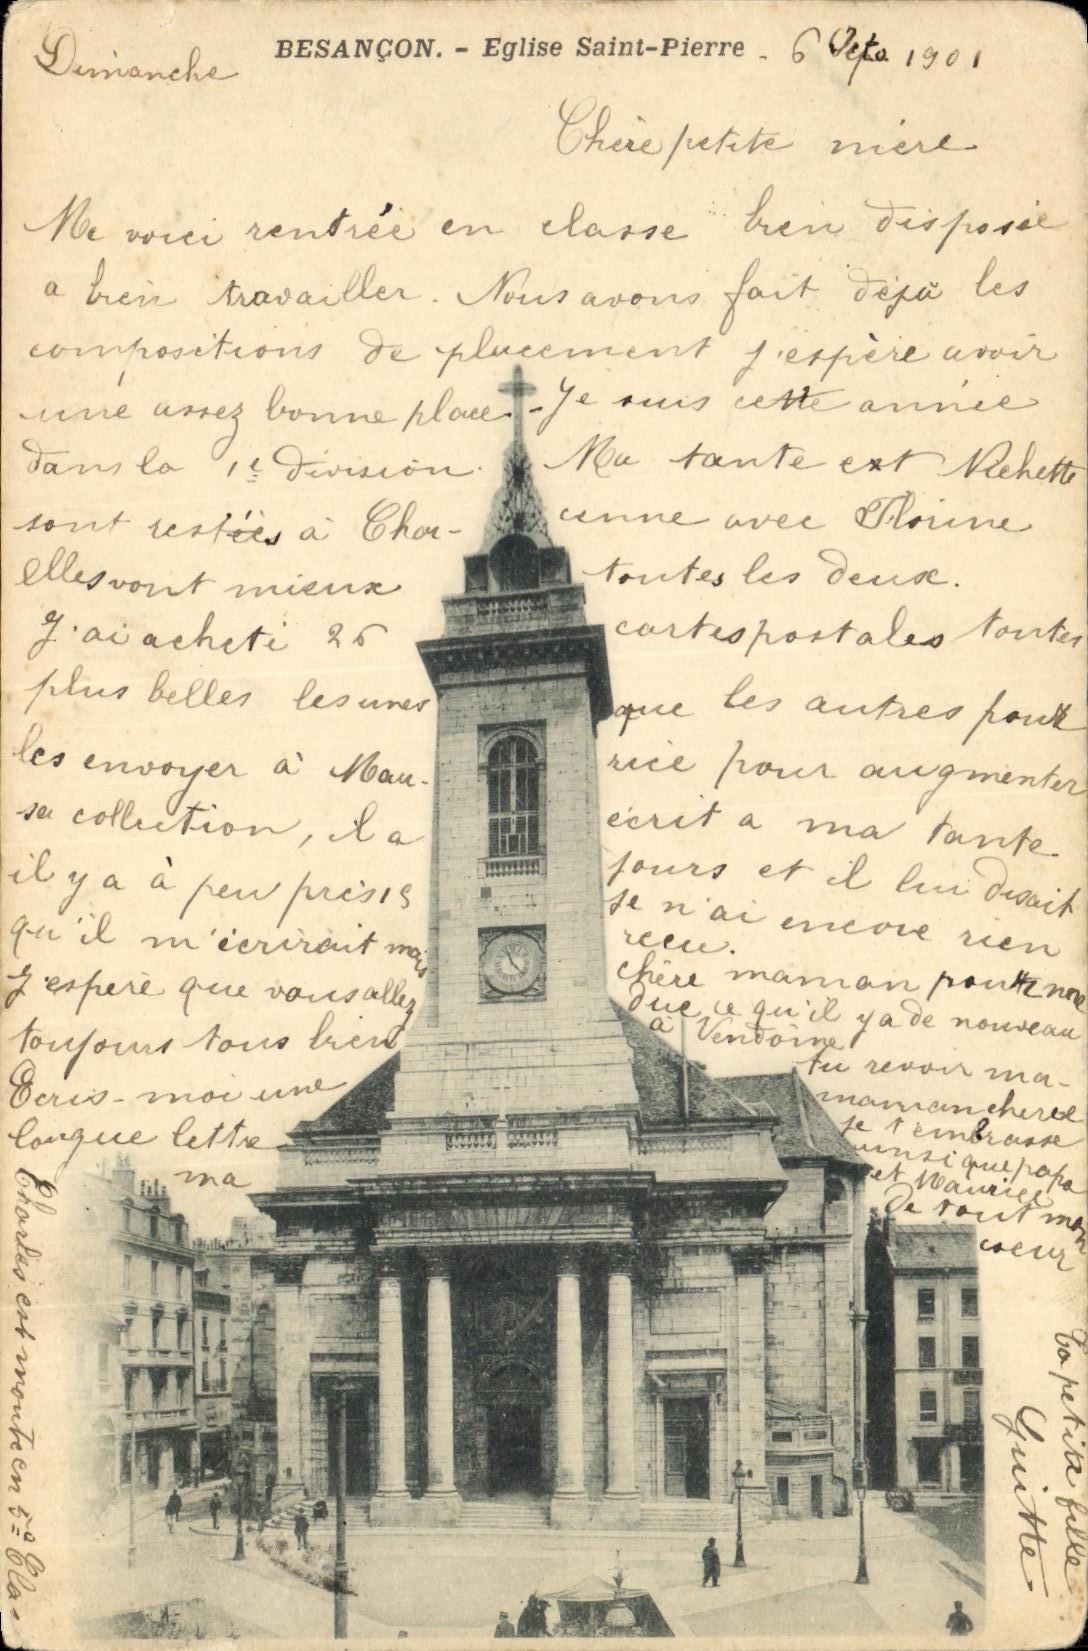 BESANÇON. - Eglise Saint-Pierre - 6 Octo 1901
Dimanche
Chère petite mère
Me voici rentrée en classe bien disposée
a bien travailler. Nous avons fait déjà les
compositions de placement j'espère avoir
une assez bonne place. - Je suis cette année
dans la 1e division. Ma tante est Nichette
sont restées à Char- enne avec Florine
elles vont mieux toutes les deux.
J'ai acheté 26 cartes postales toutes
plus belles les unes que les autres pour
les envoyer à Mau- rice pour augmenter
sa collection, il a écrit a ma tante
il y a à peu près 15 jours et il lui disait
qu'il m'écrirait mais je n'ai encore rien
recu.
J'espère que vous allez chère maman pour me
toujours tous bien dire ce qu'il y a de nouveau
à Vendôme
Ecris-moi une
longue lettre
tu revoir ma-
ma maman cherie
je t'embrasse
ainsi que papa
et Maurice
de tout mon
coeur
Ta petite fille
Guitte
Charles est monté en 5e Clas